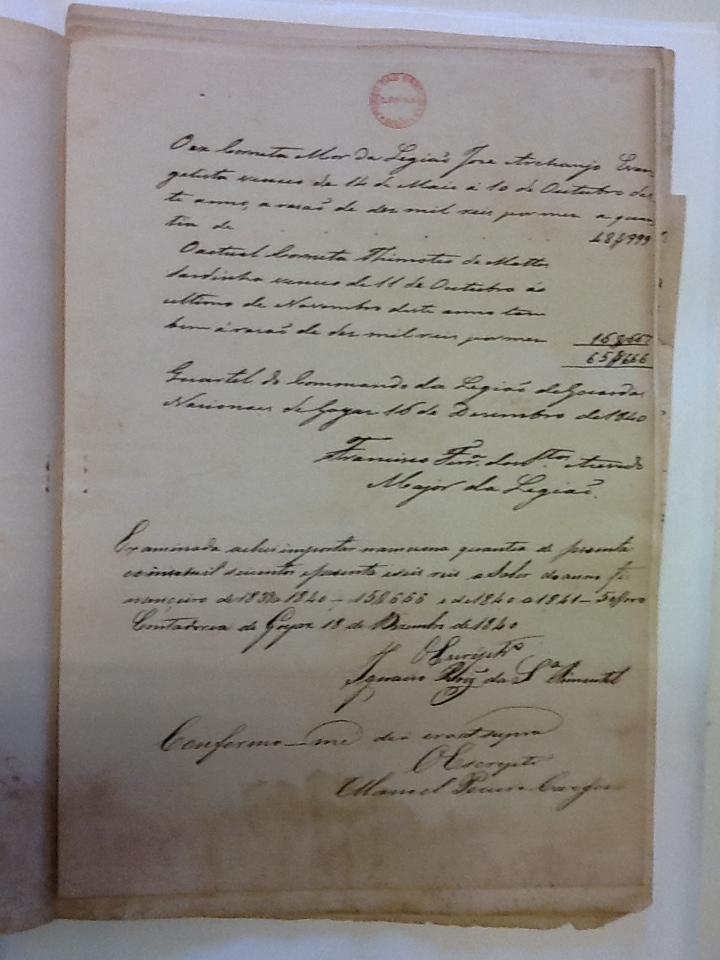 O ex Corneta Mor da Legiaõ Jose Archanjo Evan
gelista venceo de 14 de Maio á 10 de Outubro des
te anno, a rasaõ de des mil reis por mes a quan
tia de 48$999
O actual Corneta Thimoteo de Mattos
Sardinha venceo de 11 de Outubro ao
ultimo de Novembro deste anno tam
bem á rasaõ de des mil reis por mes 16$667
65$666
Quartel do Commando da Legiaõ de Guardas
Nacionaes de Goyaz 16 de Desembro de 1840
Francisco Ferr.ª dos S.tos Azevedo
Major da Legiaõ.
Examinada achei importar na mesma quantia de secenta
e cinco mil seiscentos e secenta e seis reis a saber do anno fi
nanceiro de 1839 a 1840 — 15$666 e de 1840 a 1841 —
Contadoria de Goyaz 18 de Dezembro de 1840
O Escript.º
Ignacio da S.ª Pimentel
Conformo-me dia era ut supra
O Escript.º
Manoel Pereira